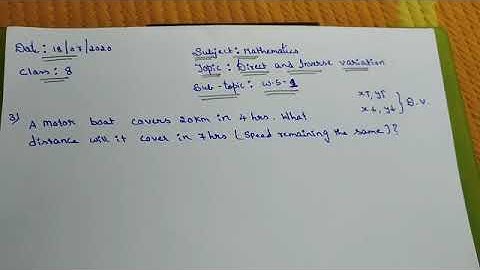 Date: 18/07/2020
Subject: Mathematics
Class: 8
Topic: Direct and Inverse variation
Sub-topic: W.S-1
x↑, y↑
x↓, y↓ } D.V.
3) A motor boat covers 20km in 4 hrs. What
distance will it cover in 7hrs (Speed remaining the same)?